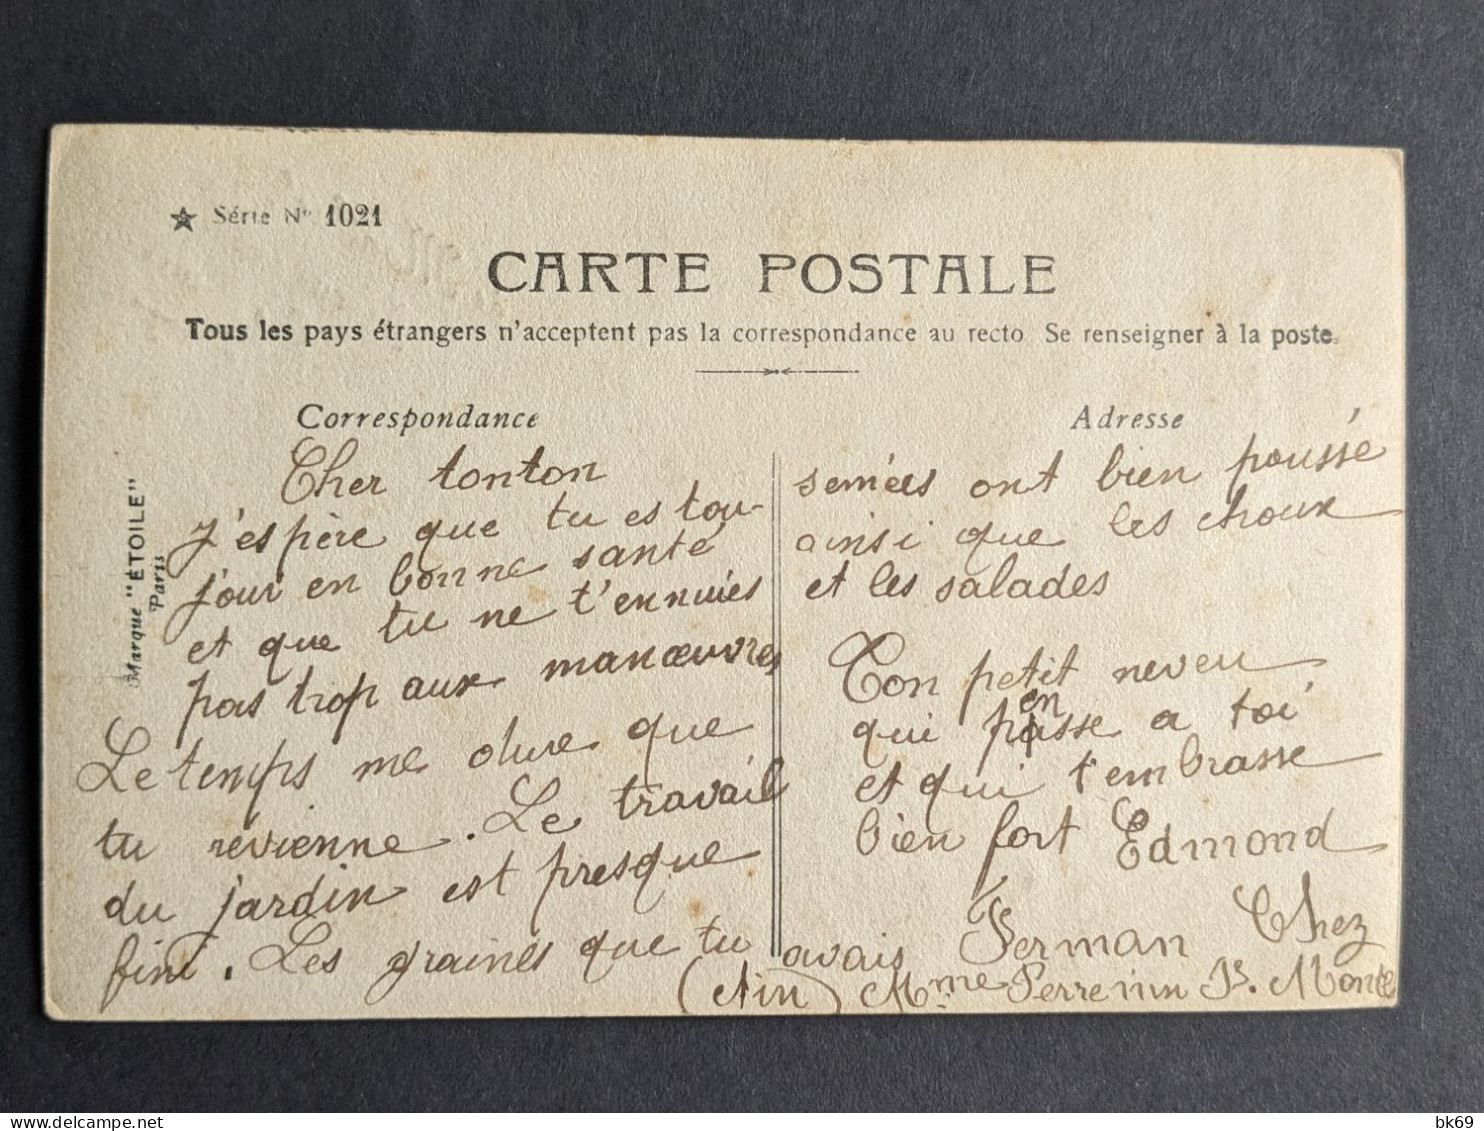 ★ Série N° 1021
CARTE POSTALE
Tous les pays étrangers n'acceptent pas la correspondance au recto Se renseigner à la poste.
Correspondance
Cher tonton
J'espère que tu es tou-
jour en bonne santé
et que tu ne t'ennuies
pas trop aux manœuvres
Le temps me dure que
tu révienne. Le travail
du jardin est presque
fini. Les graines que tu avais
Adresse
semées ont bien poussé
ainsi que les choux
et les salades
Ton petit neveu
qui pense a toi
et qui t'embrasse
bien fort Edmond
Ferman Chez
(Ain) Mme Perrenin
Marque "ÉTOILE"
Paris
delcampe.net
bk69